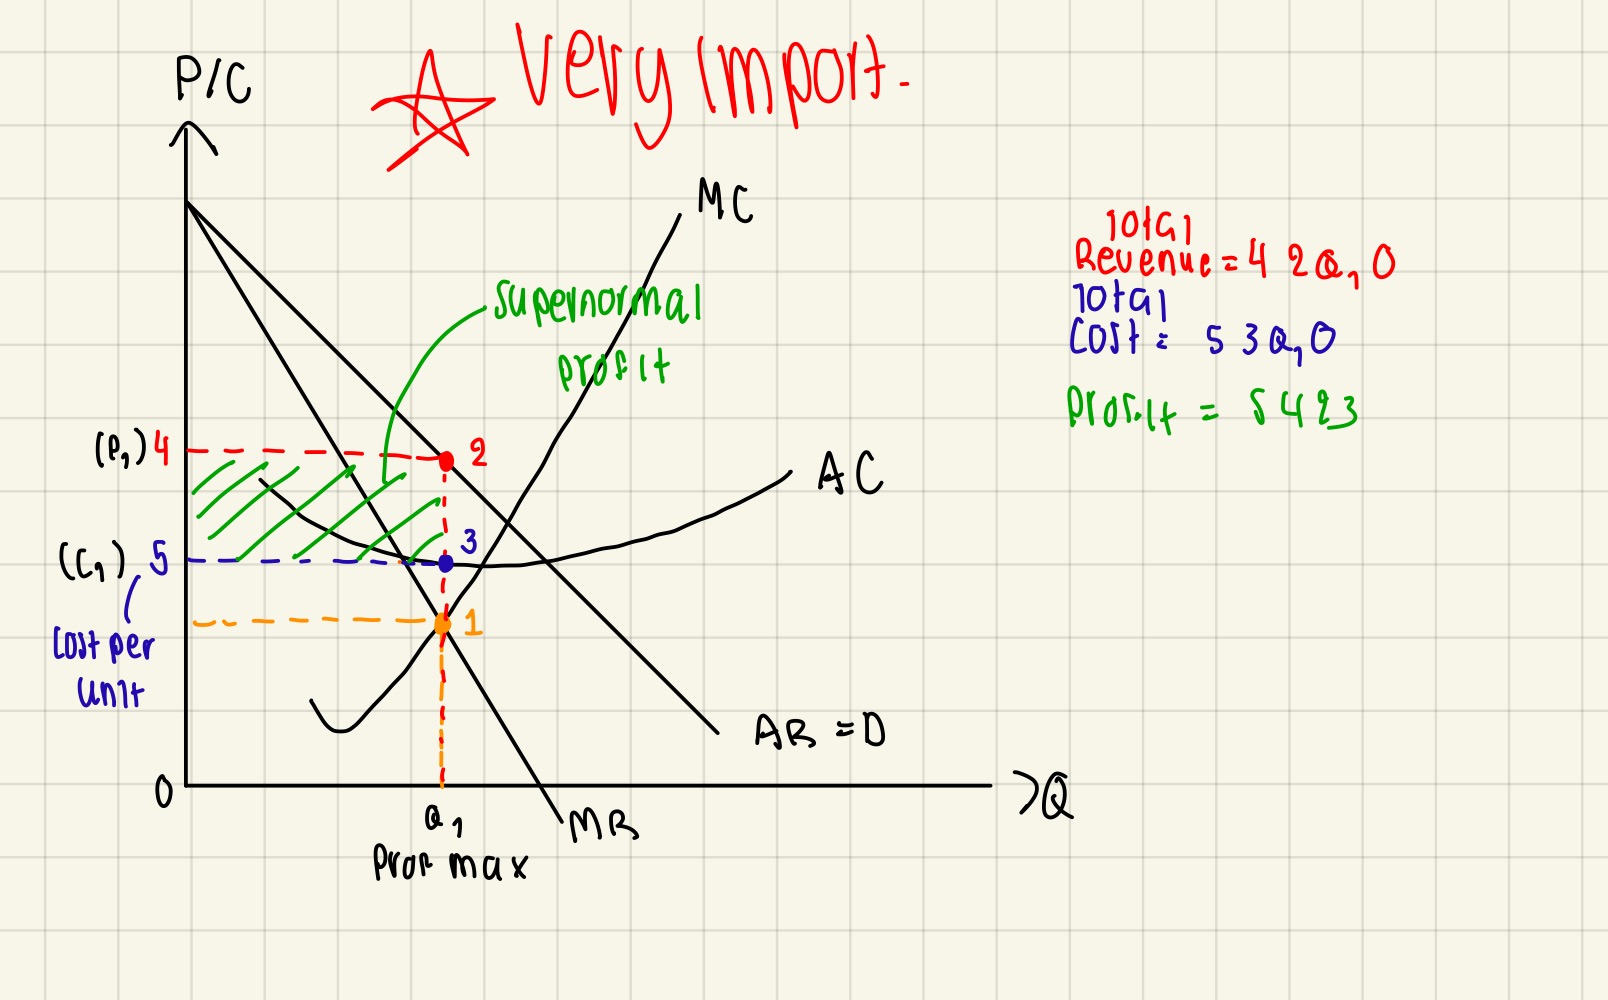 Very import.
P/C
MC
Total
Revenue = 4 2 Q1 0
Total
Cost = 5 3 Q1 0
Profit = 5 4 2 3
supernormal
profit
(P1) 4
2
AC
(C1) 5
3
1
Cost per
unit
AR = D
0
Q
Q1
MR
Prof max